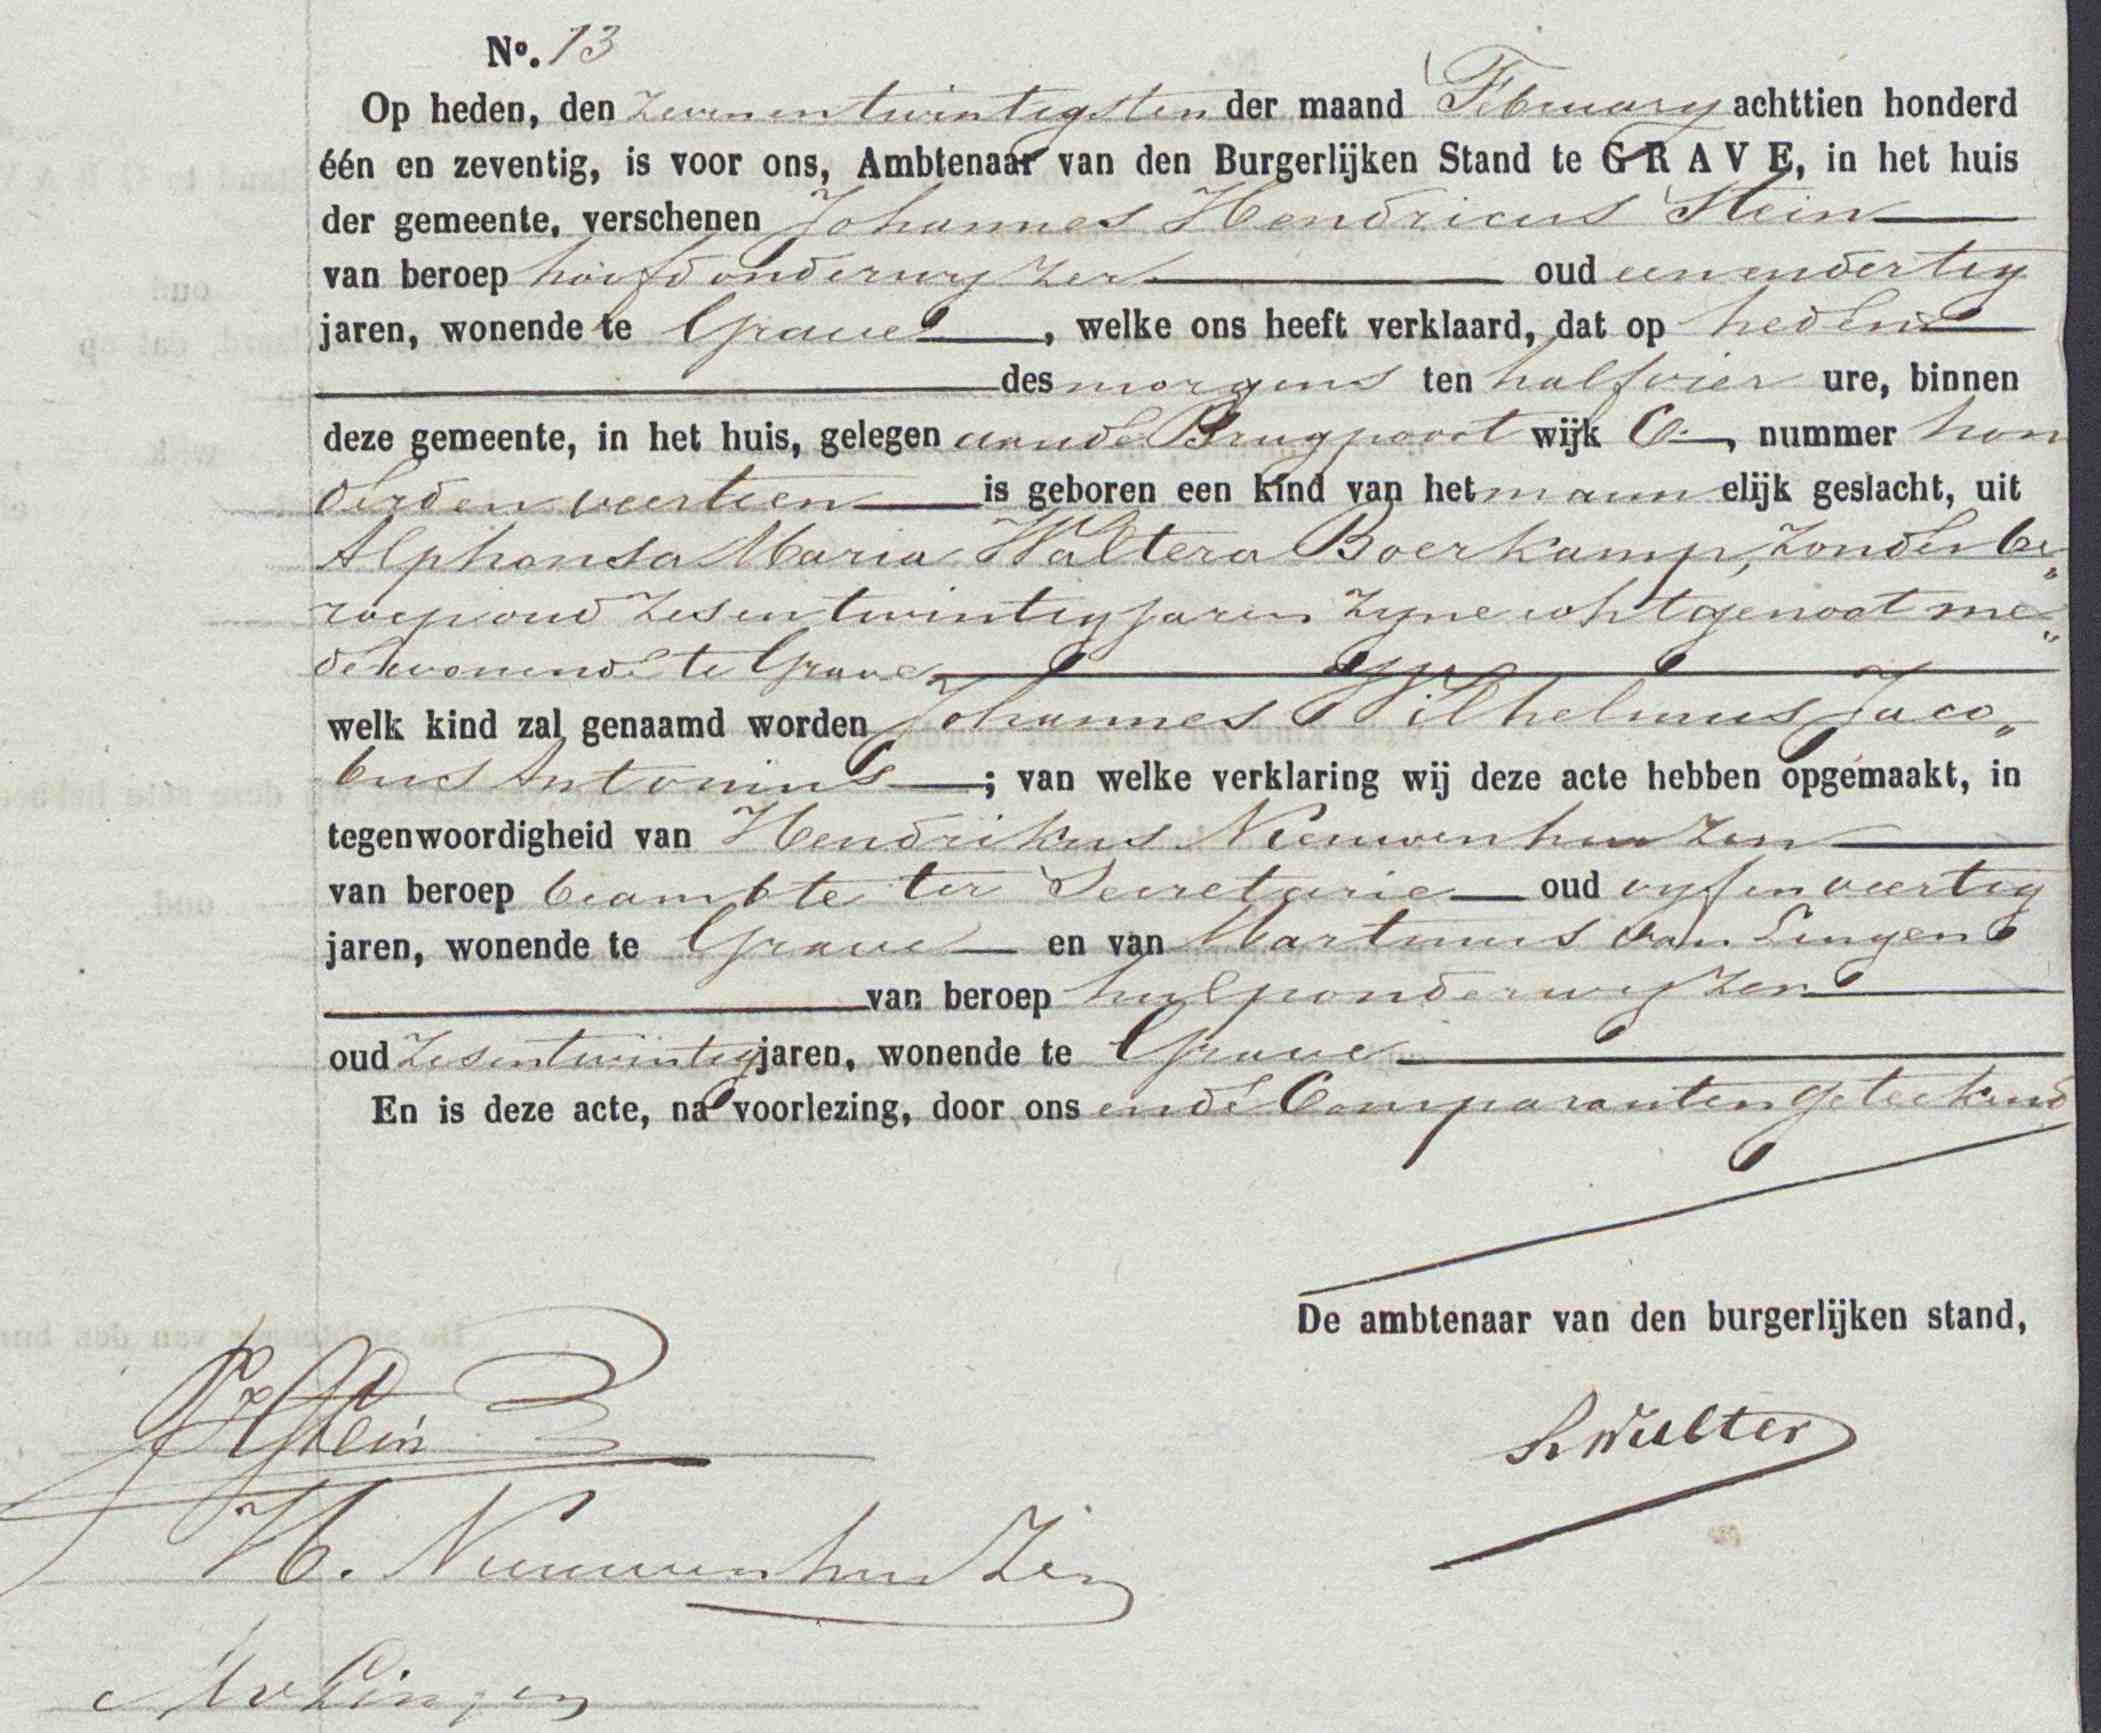 No. 13
Op heden, den zevenentwintigsten der maand February achttien honderd
één en zeventig, is voor ons, Ambtenaar van den Burgerlijken Stand te GRAVE, in het huis
der gemeente, verschenen Johannes Hendricus Stein
van beroep hoofdonderwyzer oud eenendertig
jaren, wonende te Grave, welke ons heeft verklaard, dat op heden
des morgens ten half vier ure, binnen
deze gemeente, in het huis, gelegen aan de Brugpoort wijk C, nummer hon
derdenveertien is geboren een kind van het mannelijk geslacht, uit
Alphonsa Maria Waltera Boerkamp, zonder be„
roep oud zesentwintig jaren zyne echtgenoot me„
dewonende te Grave
welk kind zal genaamd worden Johannes Wilhelmus Jaco„
bus Antonius; van welke verklaring wij deze acte hebben opgemaakt, in
tegenwoordigheid van Hendrikus Nieuwenhuizen
van beroep beambte ter Secretarie oud vyfenveertig
jaren, wonende te Grave en van Martinus van Lingen
van beroep hulponderwyzer
oud zesentwintig jaren, wonende te Grave
En is deze acte, na voorlezing, door ons en de Comparanten geteekend
De ambtenaar van den burgerlijken stand,
JHStein
H. Nieuwenhuizen
MvLingen